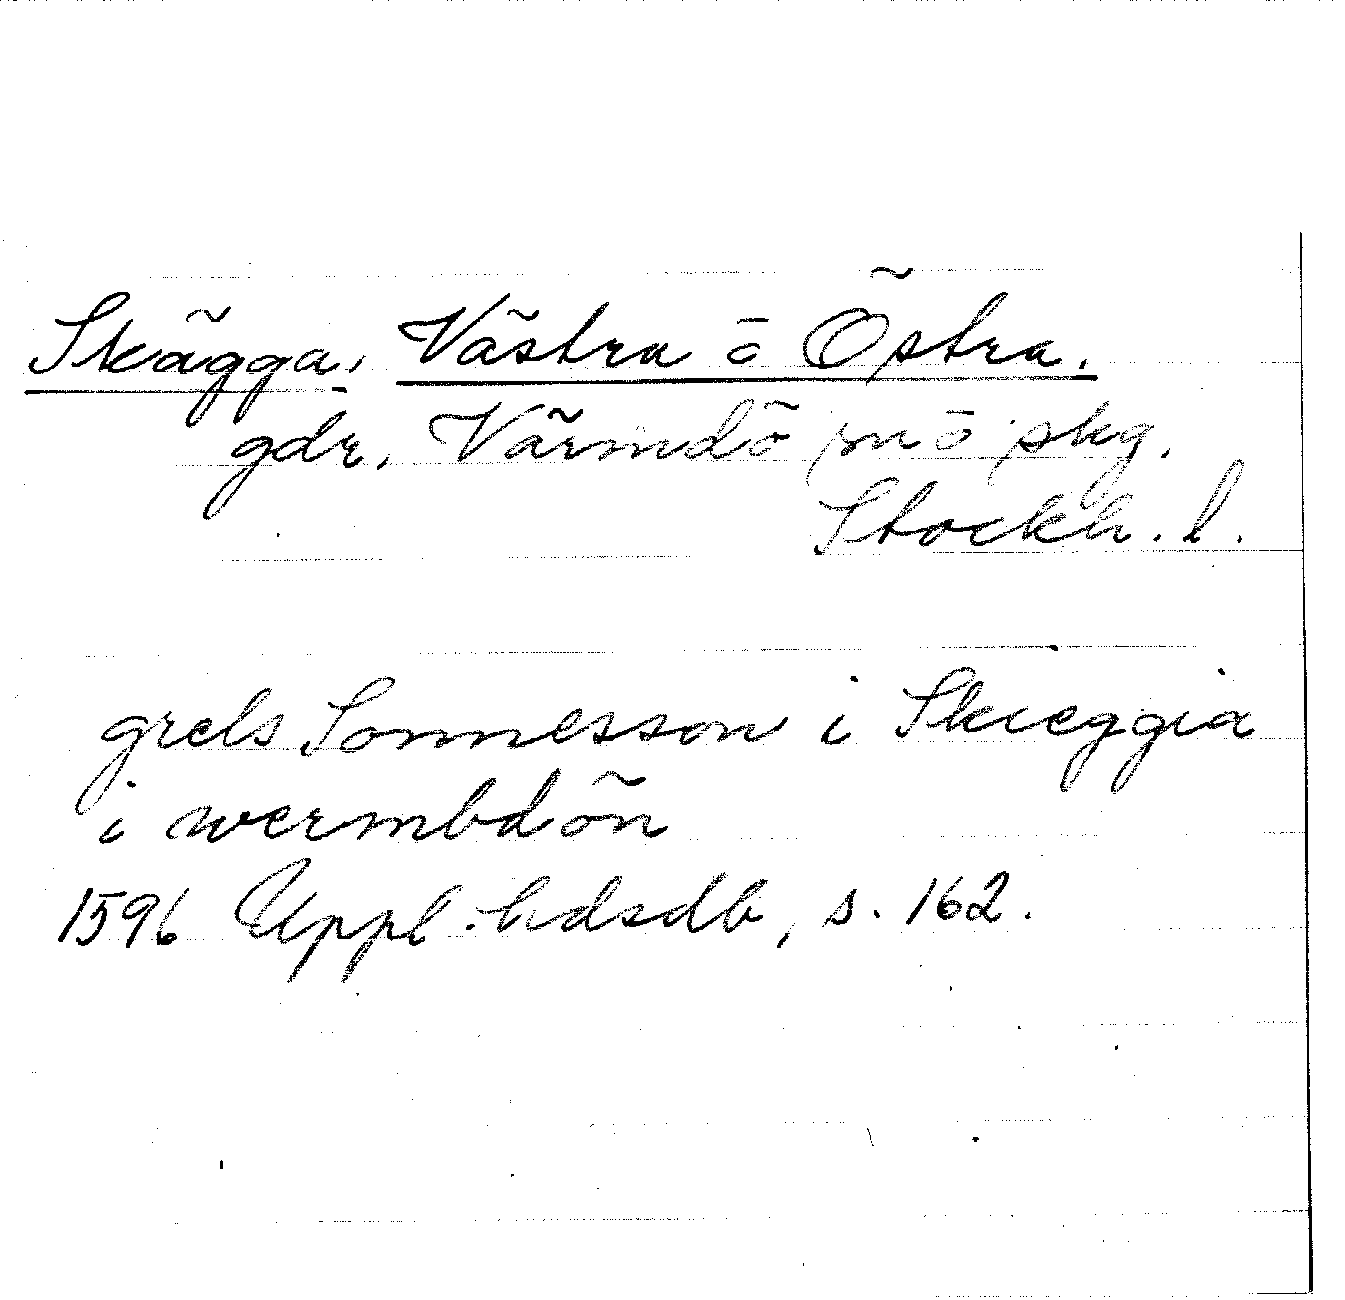 Skägga, Västra o Östra.
gdr, Värmdö sn o skg.
Stockh. l.
grels Sonnesson i Skieggia
i wermbdön
1596 Uppl. hdsdb, s. 162.